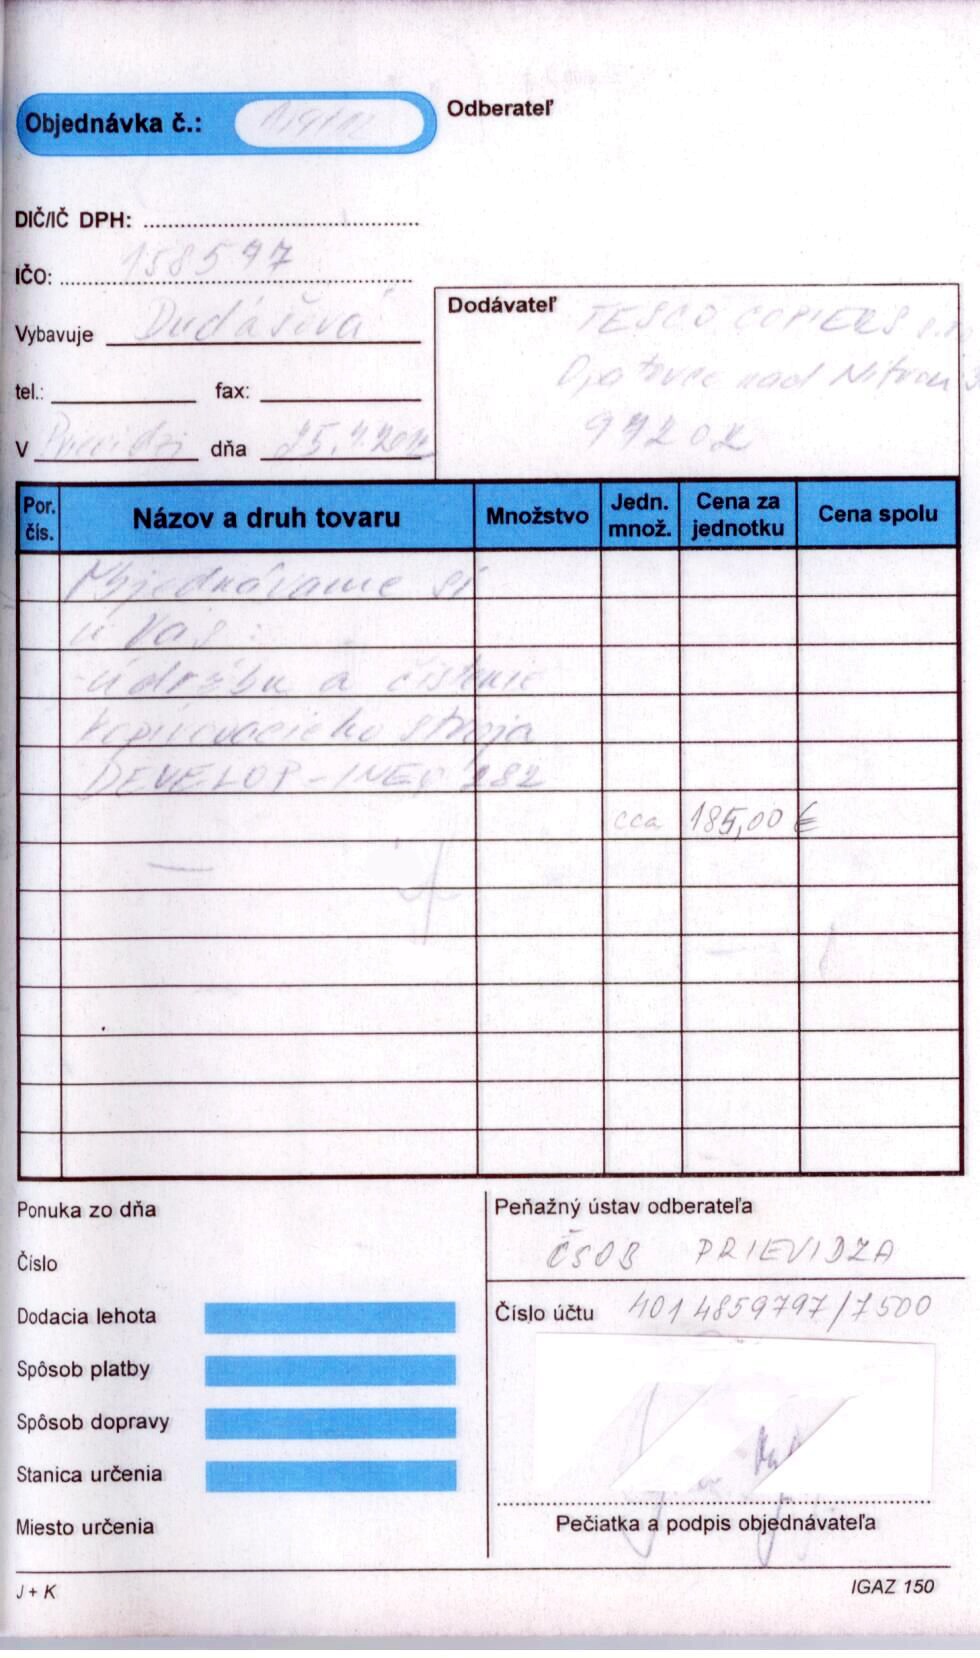 Objednávka č.:
Odberateľ
DIČ/IČ DPH:
IČO: 158597
Vybavuje Dudášová
tel.: fax:
V Prievidzi dňa 25.4.2012
Dodávateľ TESCO COPIERS
Opatovce nad Nitrou
97202
Por. čís. Názov a druh tovaru Množstvo Jedn. množ. Cena za jednotku Cena spolu
Objednávame si
u Vás :
- údržbu a čistenie
kopírovacieho stroja
DEVELOP - INEO 282
cca 185,00 €
Ponuka zo dňa
Číslo
Dodacia lehota
Spôsob platby
Spôsob dopravy
Stanica určenia
Miesto určenia
Peňažný ústav odberateľa
ČSOB PRIEVIDZA
Číslo účtu 4014859797/7500
Pečiatka a podpis objednávateľa
J + K
IGAZ 150